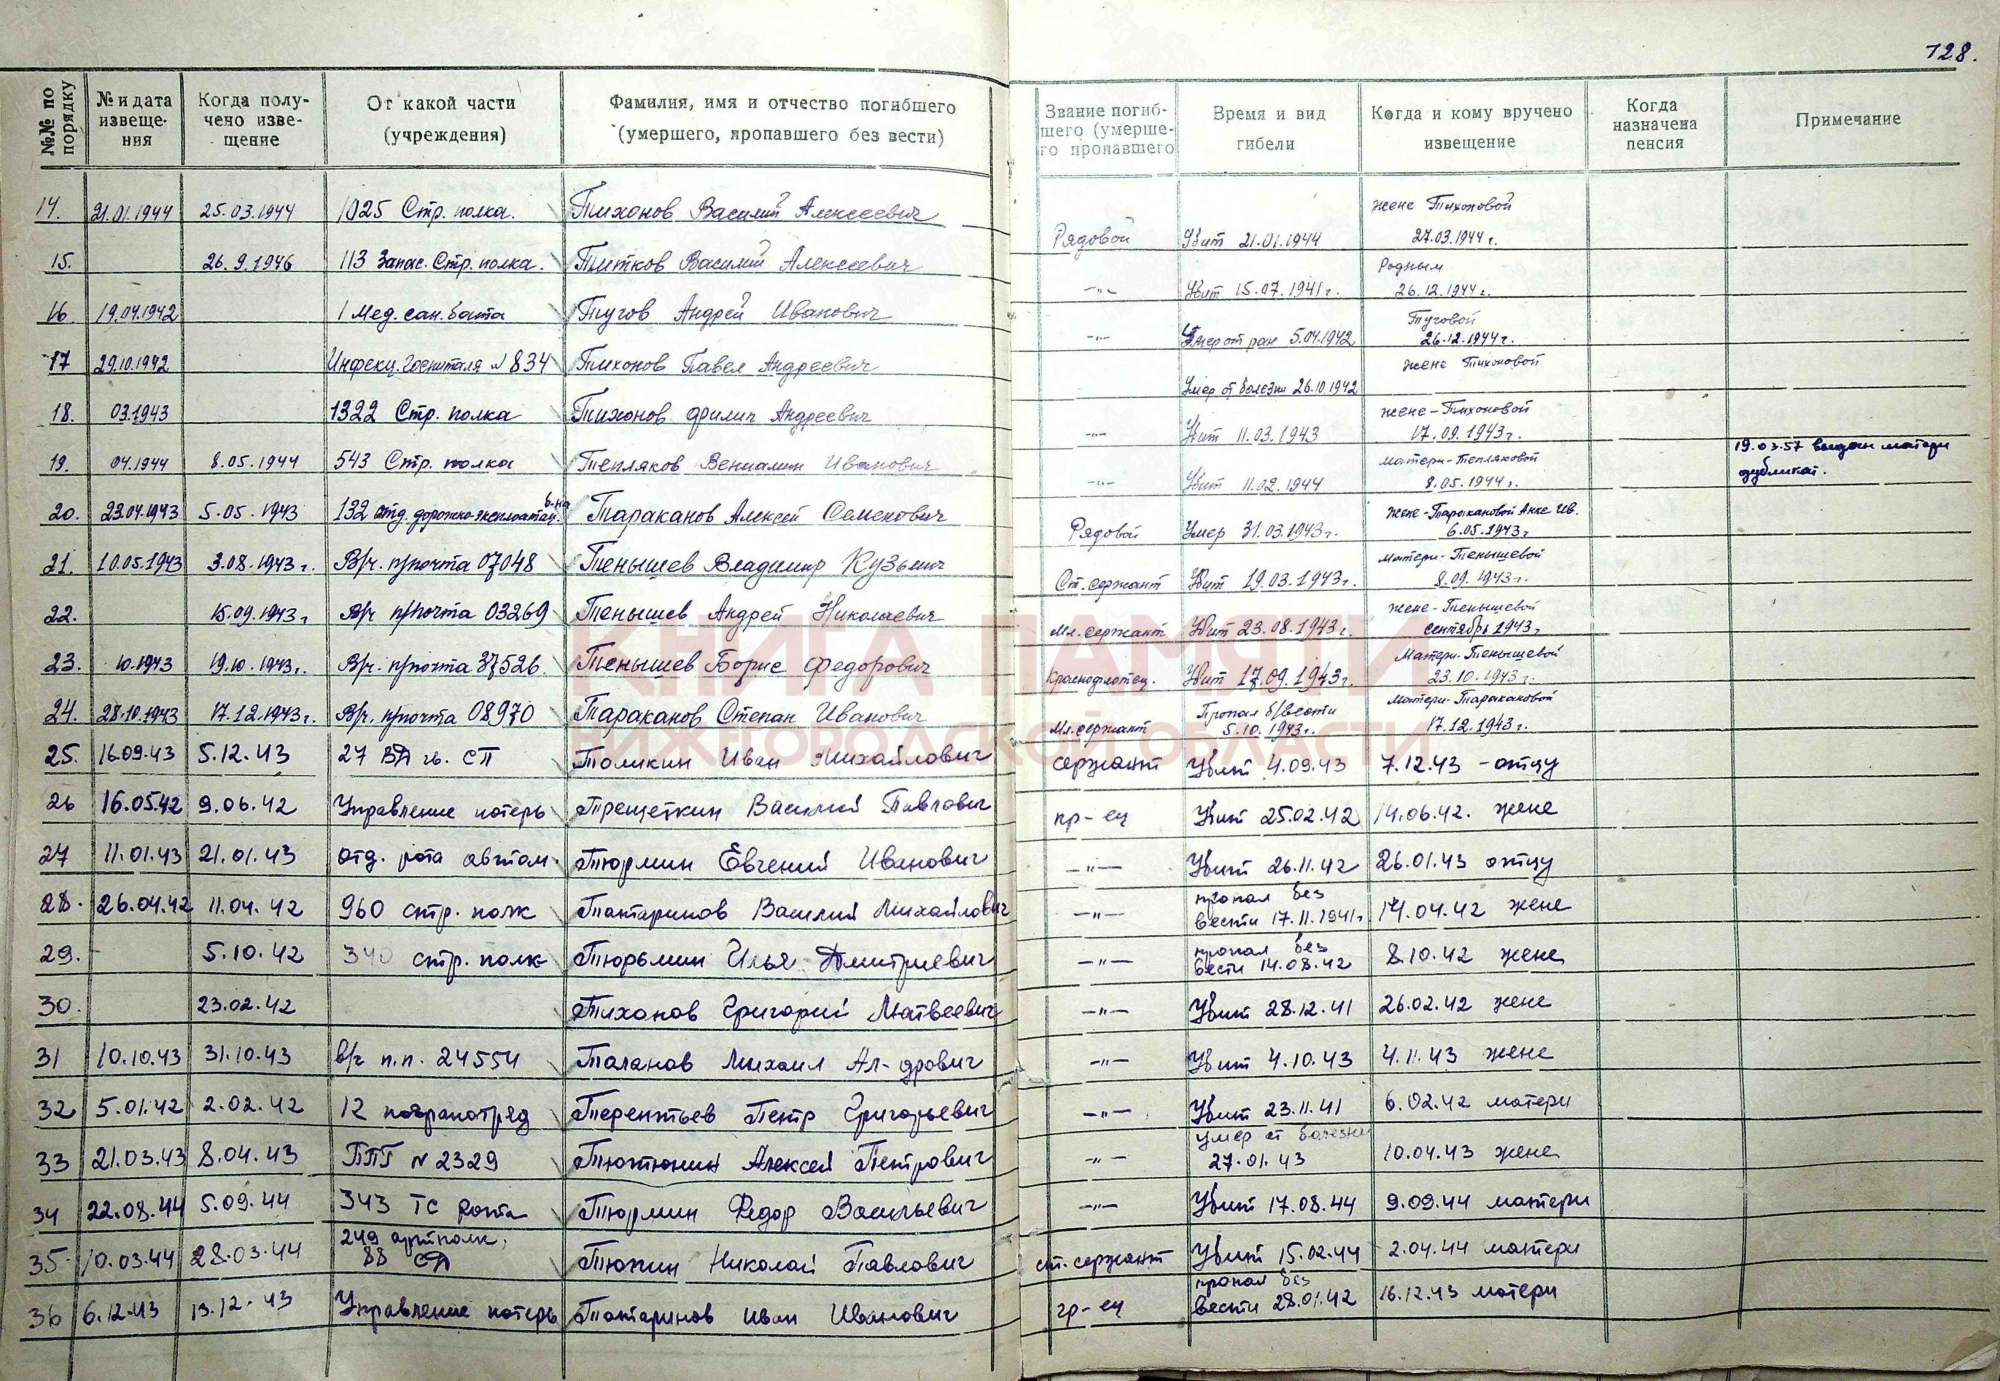 128.
№№ по порядку | № и дата извеще- ния | Когда полу- чено изве- щение | От какой части (учреждения) | Фамилия, имя и отчество погибшего (умершего, пропавшего без вести) | Звание погиб- шего (умерше- го пропавшего | Время и вид гибели | Когда и кому вручено извещение | Когда назначена пенсия | Примечание
14. | 21.01.1944 | 25.03.1944 | 1025 Стр. полка. | Тихонов Василий Алексеевич | Рядовой | Убит 21.01.1944 | жене Тихоновой 27.03.1944 г.
15. | 26.9.1946 | 113 Запас. Стр. полка. | Титков Василий Алексеевич | -"- | Убит 15.07.1941 г. | Родным 26.12.1944 г.
16. | 19.04.1942 | 1 Мед. сан. бата | Тугов Андрей Иванович | -"- | Умер от ран 5.04.1942 | Туговой 26.12.1944 г.
17 | 29.10.1942 | Инфекц. Госпиталя № 834 | Тихонов Павел Андреевич | Умер от болезни 26.10.1942 | жене Тихоновой
18. | 03.1943 | 1322 Стр. полка | Тихонов Филип Андреевич | -"- | Убит 11.03.1943 | жене - Тихоновой 17.09.1943 г.
19. | 04.1944 | 8.05.1944 | 543 Стр. полка | Тепляков Вениамин Иванович | -"- | Убит 11.02.1944 | матери - Тепляковой 8.05.1944 г. | 19.03.57 выдан матери дубликат.
20. | 23.04.1943 | 5.05.1943 | 132 отд. дорожно-эксплоатац. б-на | Тараканов Алексей Семенович | Рядовой | Умер 31.03.1943 г. | жене - Таракановой Анне Ив. 6.05.1943 г
21. | 10.05.1943 | 3.08.1943 г. | В/ч. п/почта 07048 | Тенышев Владимир Кузьмич | Ст. сержант | Убит 19.03.1943 г. | матери - Тенышевой 8.09.1943 г.
22. | 15.09.1943 г | В/ч п/почта 03269 | Тенышев Андрей Николаевич | Мл. сержант | Убит 23.08.1943 г. | жене - Тенышевой сентябрь 1943 г
23. | 10.1943 | 19.10.1943 г. | В/ч. п/почта 37526. | Тенышев Борис Федорович | Краснофлотец. | Убит 17.09.1943 г. | Матери - Тенышевой 23.10.1943 г.
24. | 28.10.1943 | 17.12.1943 г. | В/ч. п/почта 08970 | Тараканов Степан Иванович | Мл. сержант | Пропал б/вести 5.10.1943 г. | матери - Таракановой 17.12.1943 г.
25. | 16.09.43 | 5.12.43 | 27 ВД гв. СП | Толикин Иван Михайлович | сержант | Убит 4.09.43 | 7.12.43 - отцу
26 | 16.05.42 | 9.06.42 | Управление потерь | Трещеткин Василий Павлович | кр-ец | Убит 25.02.42 | 14.06.42. жене
27 | 11.01.43 | 21.01.43 | отд. рота автом. | Тюрмин Евгений Иванович | -"- | Убит 26.11.42 | 26.01.43 отцу
28. | 26.04.42 | 11.04.42 | 960 стр. полк | Татаринов Василий Михайлович | -"- | пропал без вести 17.11.1941 г | 14.04.42 жене
29. | - | 5.10.42 | 340 стр. полк | Тюрьмин Илья Дмитриевич | -"- | пропал без вести 14.08.42 | 8.10.42 жене
30. | 23.02.42 | Тихонов Григорий Матвеевич | -"- | Убит 28.12.41 | 26.02.42 жене
31 | 10.10.43 | 31.10.43 | в/ч п.п. 24554 | Таланов Михаил Ал-дрович | -"- | Убит 4.10.43 | 4.11.43 жене
32 | 5.01.42 | 2.02.42 | 12 погранотряд | Терентьев Петр Григорьевич | -"- | Убит 23.11.41 | 6.02.42 матери
33 | 21.03.43 | 8.04.43 | ППГ № 2329 | Тютюнин Алексей Петрович | -"- | умер от болезни 27.01.43 | 10.04.43 жене
34 | 22.08.44 | 5.09.44 | 343 ТС рота | Тюрмин Федор Васильевич | -"- | Убит 17.08.44 | 9.09.44 матери
35 | 10.03.44 | 28.03.44 | 249 артполк, 88 СД | Тюжин Николай Павлович | ст. сержант | Убит 15.02.44 | 2.04.44 матери
36 | 6.12.43 | 13.12.43 | Управление потерь | Татаринов Иван Иванович | гр-ец | пропал без вести 28.01.42 | 16.12.43 матери
КНИГА ПАМЯТИ
НИЖЕГОРОДСКОЙ ОБЛАСТИ